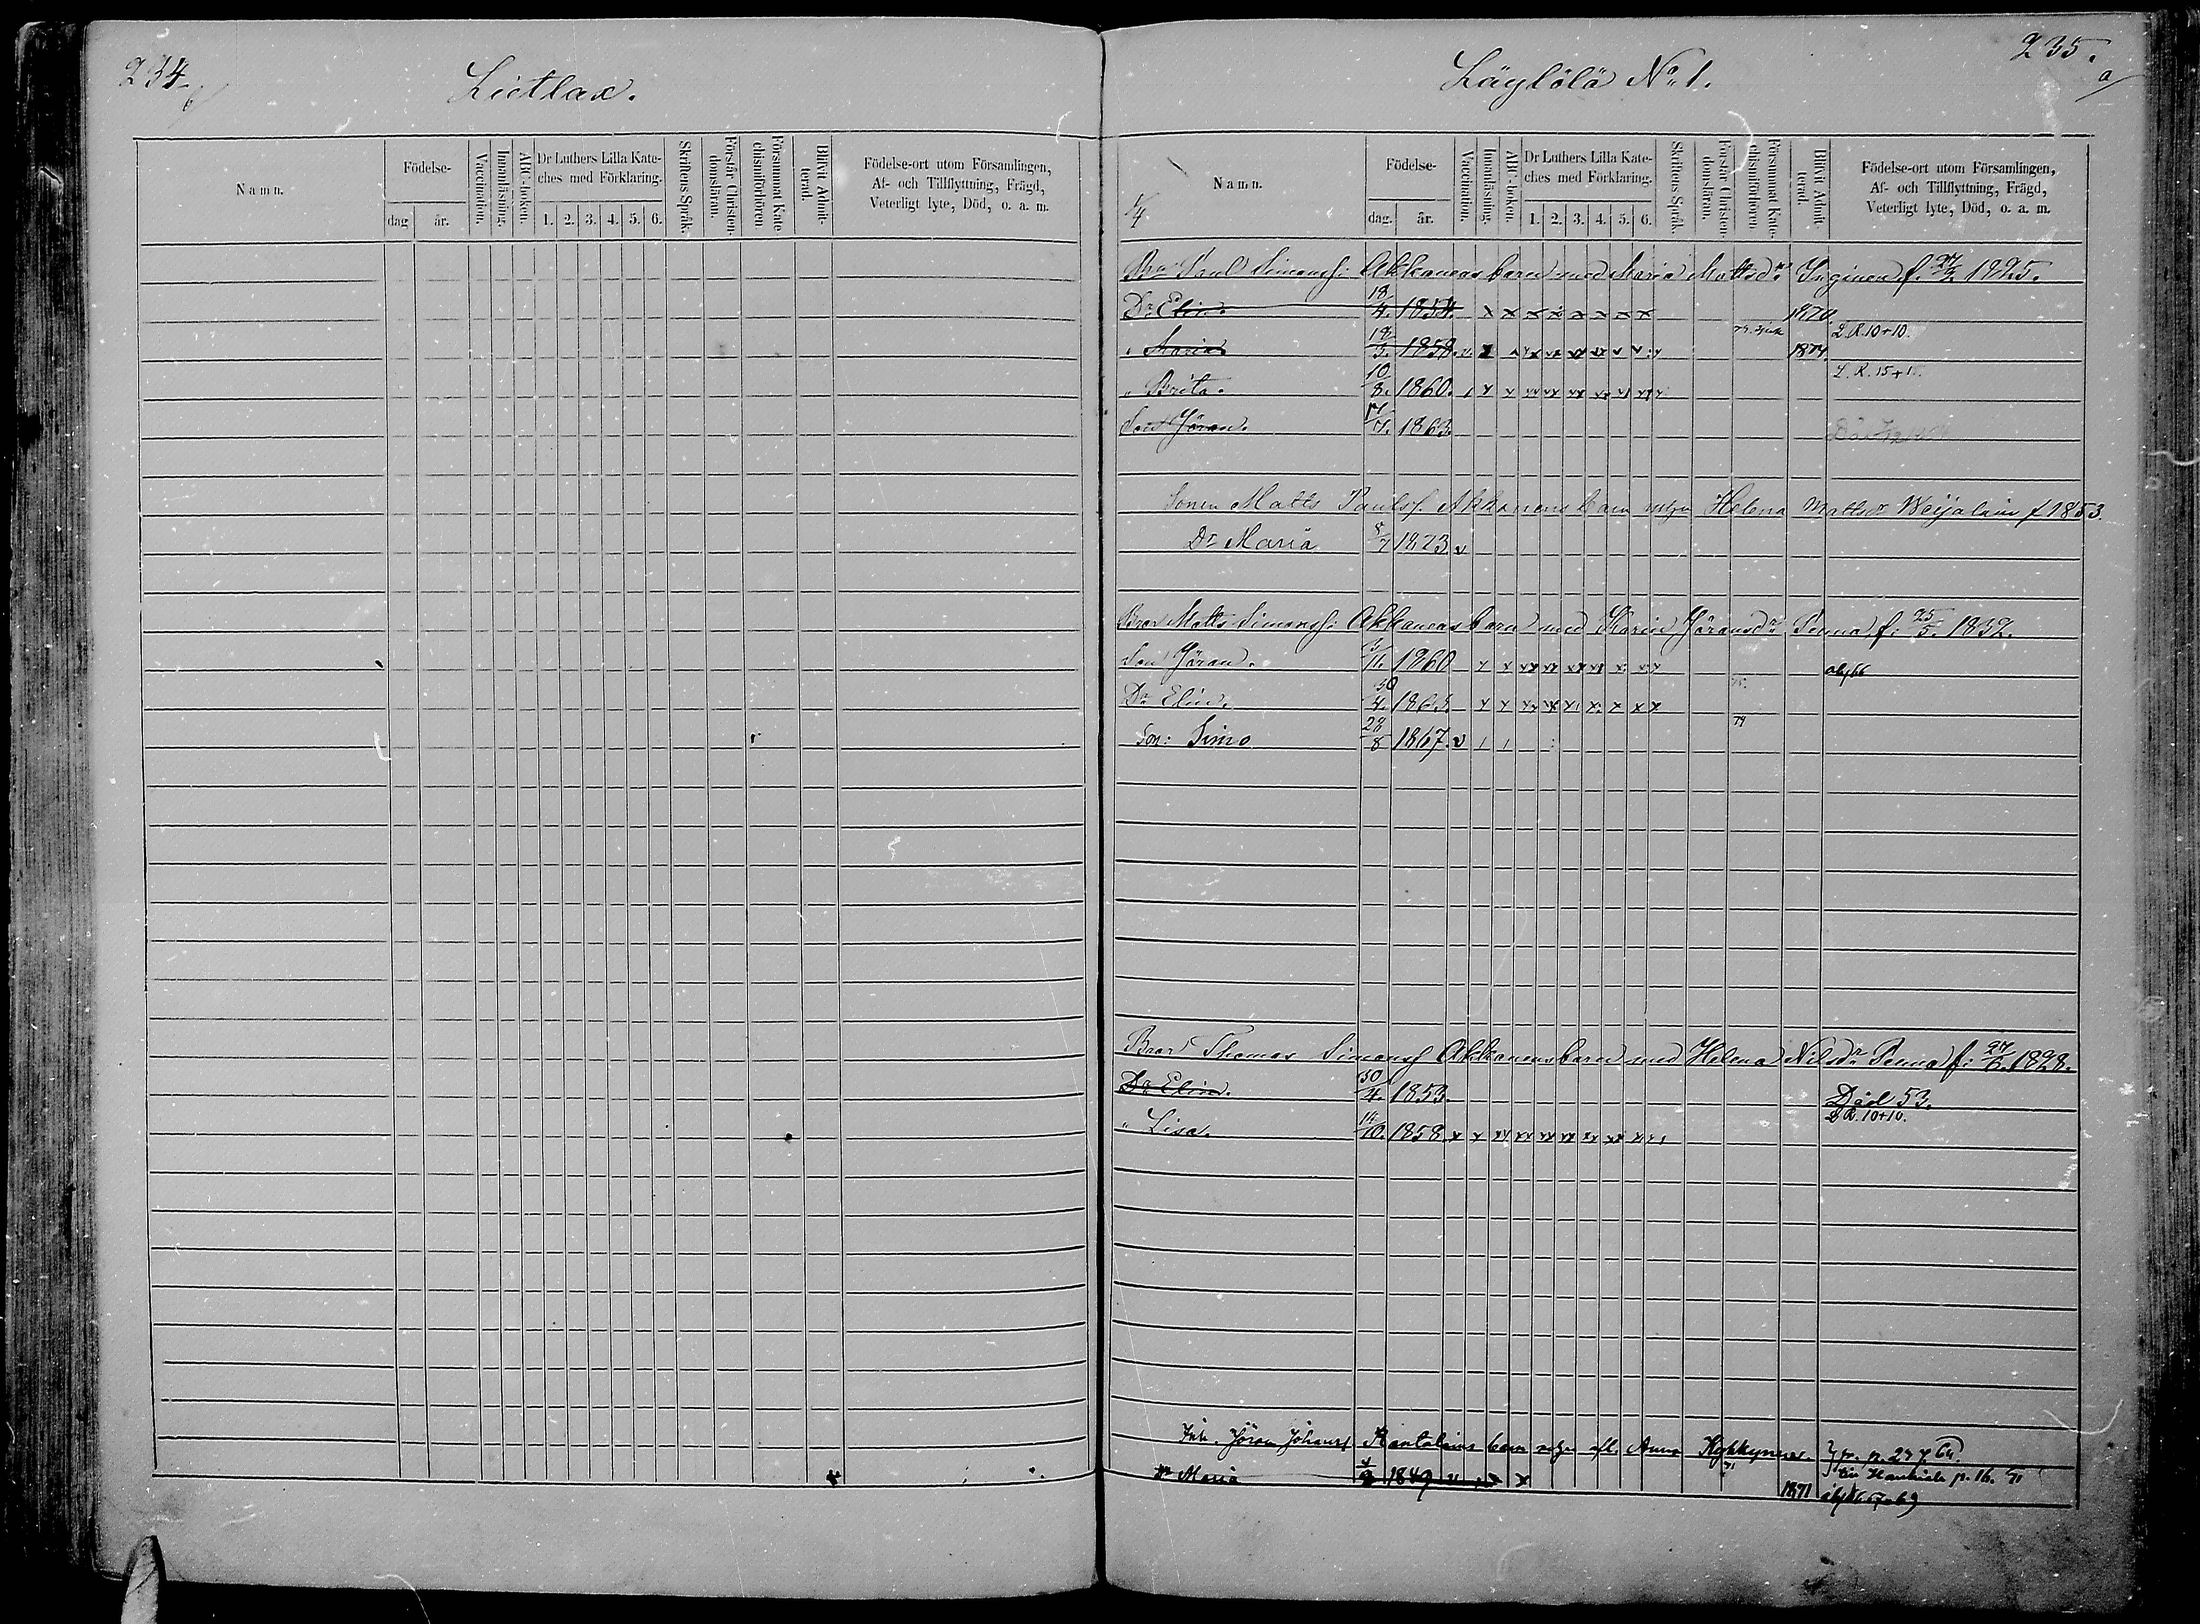 234
Lietlax.
Namn.
Födelse-
dag
år.
Vaccination.
Innanläsning.
ABC-boken.
Dr Luthers Lilla Kate-
ches med Förklaring.
1. 2. 3. 4. 5. 6.
Skriftens Språk.
Förstår Christen-
domsläran.
Försummat Kate-
chismiförhören
Blifvit Admit-
terad.
Födelse-ort utom Församlingen,
Af- och Tillflyttning, Frägd,
Veterligt lyte, Död, o. a. m.
235.
a
Läylölä No 1.
1/4
Namn.
Födelse-
dag.
år.
Vaccination.
Innanläsning.
ABC-boken.
Dr Luthers Lilla Kate-
ches med Förklaring.
1. 2. 3. 4. 5. 6.
Skriftens Språk.
Förstår Christen-
domsläran.
Försummat Kate-
chismiförhören.
Blifvit Admit-
terad.
Födelse-ort utom Församlingen,
Af- och Tillflyttning, Frägd,
Veterligt lyte, Död, o. a. m.
Paul Simonss: Akkanens barn med Maria Mattsdr Inginen f. 1825.
Dr Elin. 18/4. 1854. 1870.
" Maria 1858. 1874. L.R. 10+10.
" Brita. 10/8. 1860. L.R. 15+
Son Jöran. 1863.
Sonen Matts Paulss. Akkanens barn Helena Mattsdr Weijalain f 1853.
Dr Maria 1873
Bror Matts Simonss: Akkanens barn med Karin Jöransdr Penna f. 25/5. 1832.
Son Jöran. 1860
Dr Elin. 30/4. 1863. 75.
Son: Simo 1867. 79
Bror Thomas Simonss Akkanens barn med Helena Nilsdr Penna f: 1828.
Dr Elin. 30/4. 1853 Död 53.
" Lisa. 14/10. 1858 L.R. 10+10.
Inh. Jöran Johanss barn Anna Kykkynen. p. 277
Dr Maria 1849 71 1871 p. 16. 71